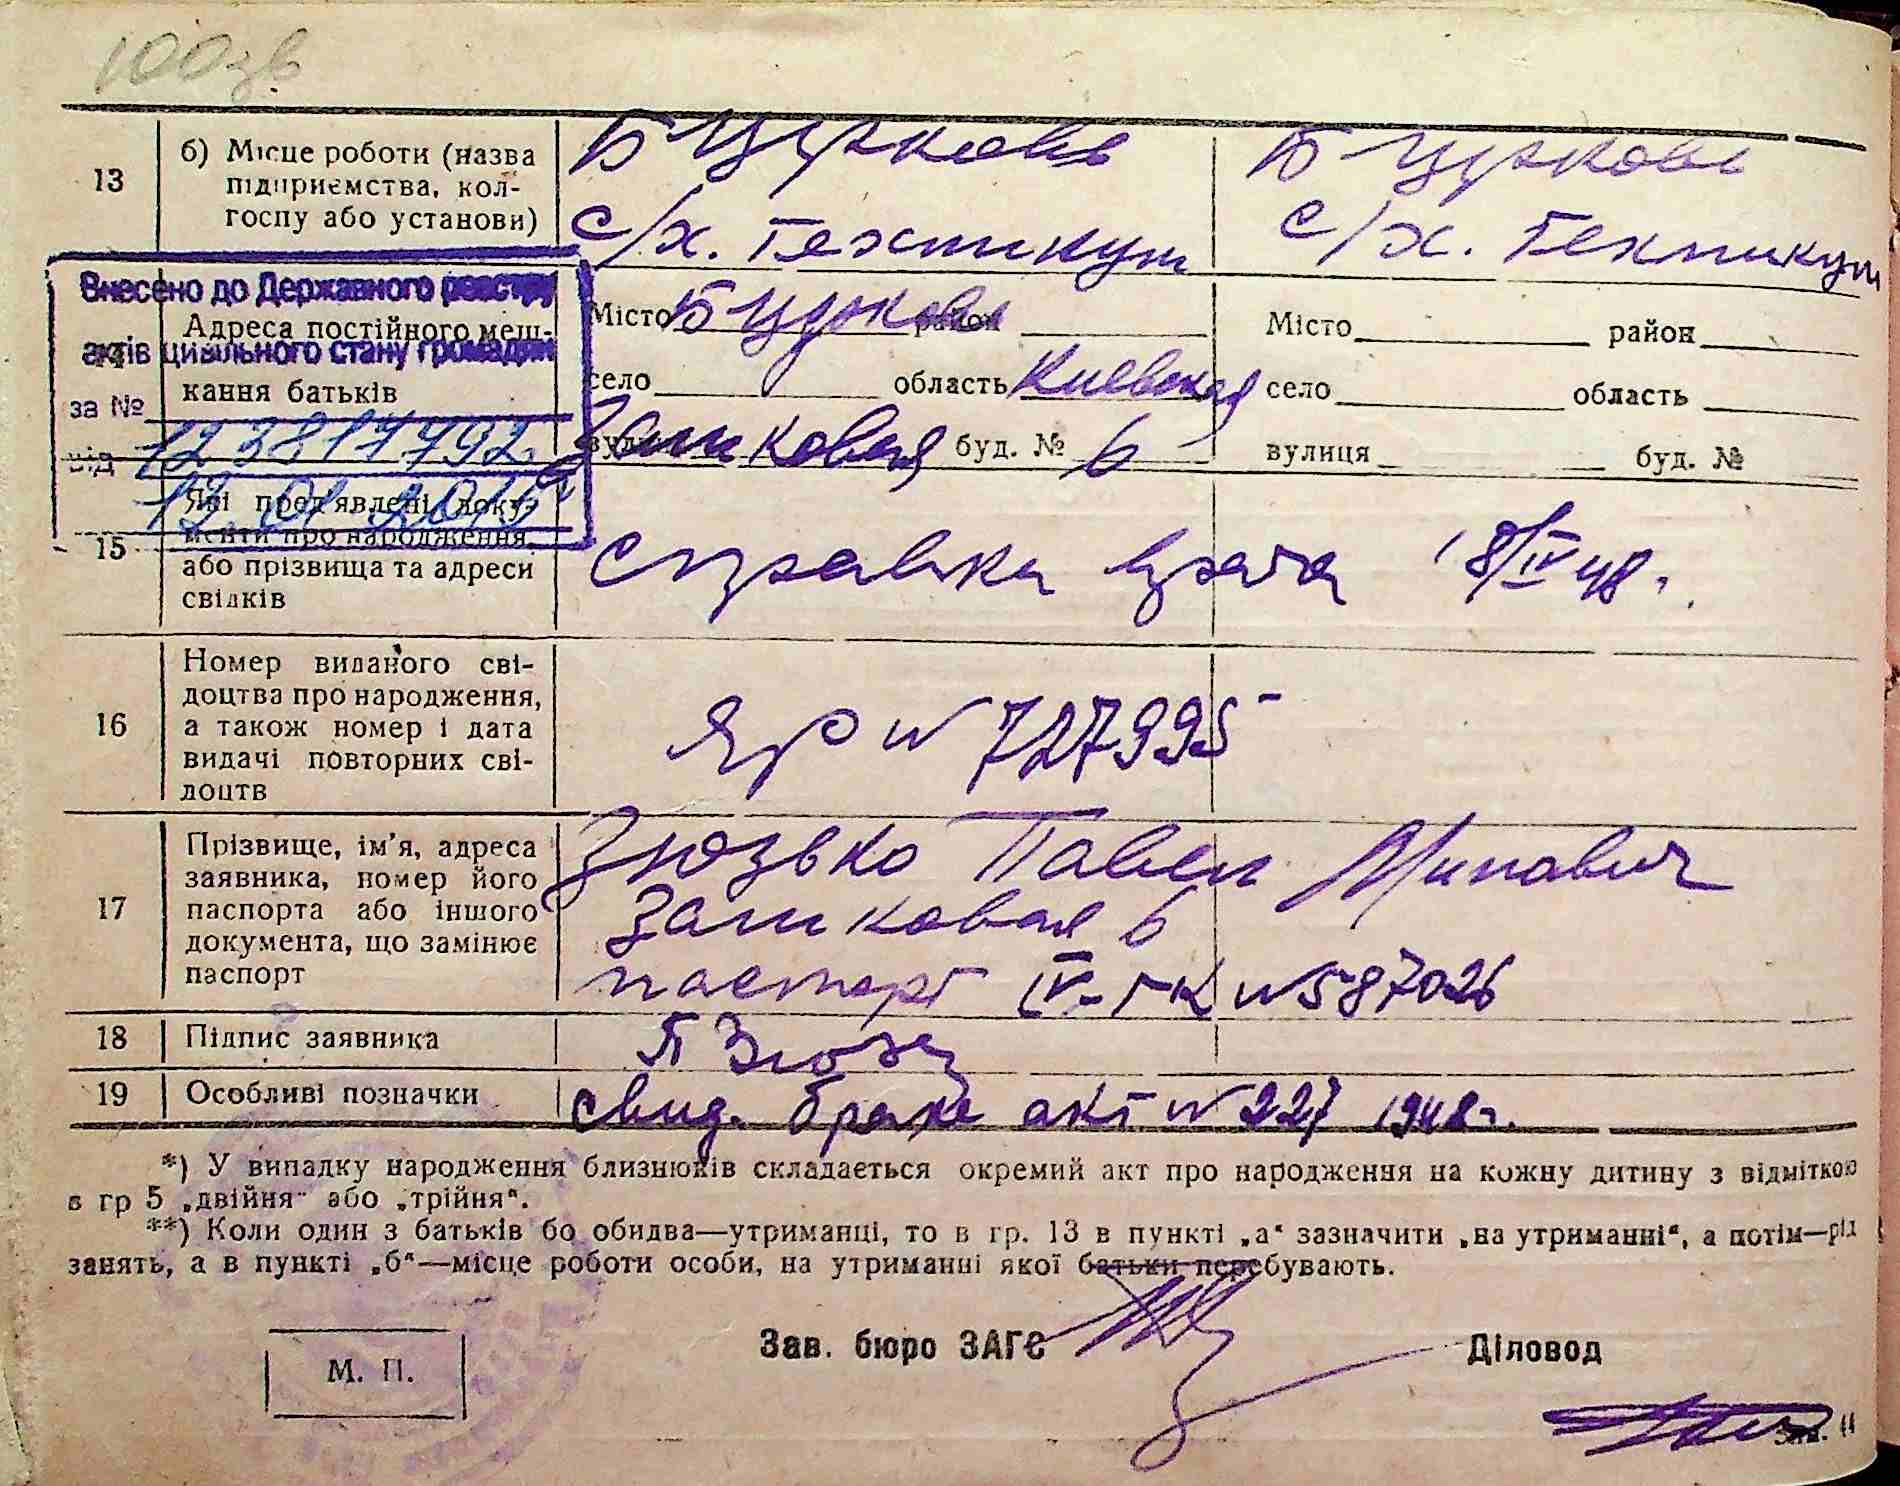 100зв
13
б) Місце роботи (назва підприємства, колгоспу або установи)
Б Церковь
с/х. Техникум
Б Церковь
с/х. Техникум
Внесено до Державного реєстру
актів цивільного стану громадян
за № 123817792
від 12.01.2015
14
Адреса постійного мешкання батьків
Місто Б Церковь район
село область Киевская
вулиця Замковая буд. № 6
Місто район
село область
вулиця буд. №
15
Які пред'явлені документи про народження, або прізвища та адреси свідків
Справка врача 18/IV 48.
16
Номер виданого свідоцтва про народження, а також номер і дата видачі повторних свідоцтв
ЯР № 727995
17
Прізвище, ім'я, адреса заявника, номер його паспорта або іншого документа, що замінює паспорт
Зюзько Павел
Замковая 6
паспорт IV-ГК № 587026
18
Підпис заявника
П Зюзь
19
Особливі позначки
Свид. браке акт № 227 1948 г.
*) У випадку народження близнюків складається окремий акт про народження на кожну дитину з відміткою
в гр 5 „двійня" або „трійня".
**) Коли один з батьків бо обидва—утриманці, то в гр. 13 в пункті „а" зазначити „на утриманні", а потім—рід
занять, а в пункті „б"—місце роботи особи, на утриманні якої батьки перебувають.
М. П.
Зав. бюро ЗАГС
Діловод